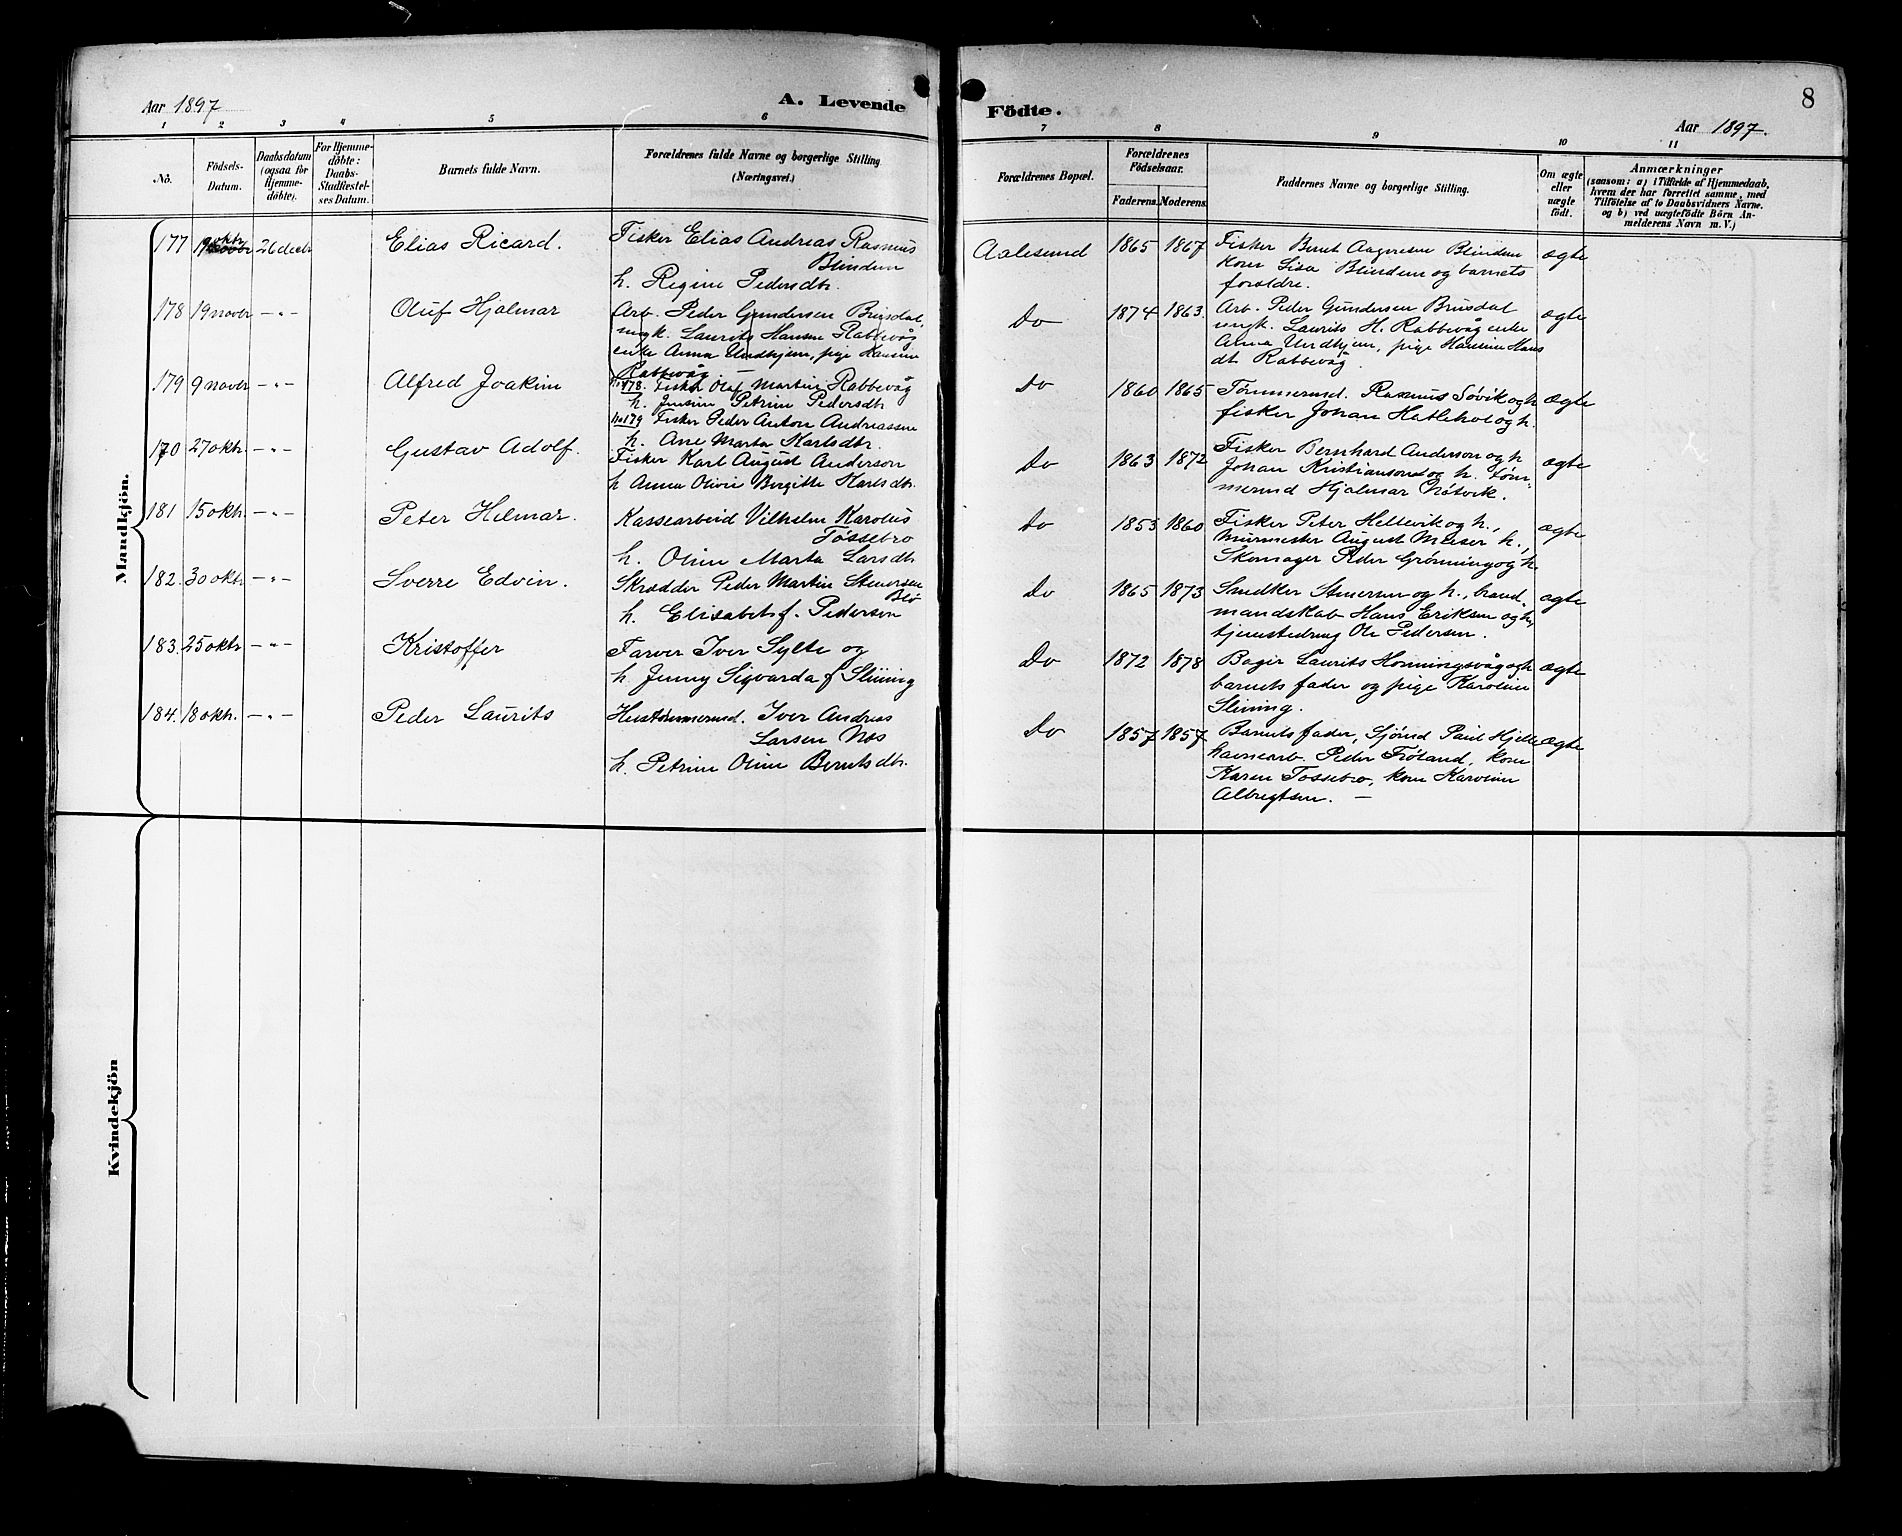 Aar 1897
A. Levende
Födte.
8
Aar 1897.
1 2 3 4 5 6 7 8 9 10 11
No.
Födsels-
Datum.
Daabsdatum
(ogsaa for
Hjemme-
döbte).
For Hjemme-
döbte:
Daabs-
Stadfæstel-
ses Datum.
Barnets fulde Navn.
Forældrenes fulde Navne og borgerlige Stilling
(Næringsvei.)
Forældrenes Bopæl.
Forældrenes
Födselsaar.
Faderens. Moderens.
Faddernes Navne og borgerlige Stilling.
Om ægte
eller
uægte
födt.
Anmærkninger
(saasom: a) i Tilfælde af Hjemmedaab,
hvem der har forrettet samme, med
Tilföielse af to Daabsvidners Navne.
og b) ved uægtefödte Börn An-
melderens Navn m. V.)
Mandkjön.
177 19 oktr 26 decbr Elias Ricard.
Fisker Elias Andreas Rasmus
Blindem
h. Regine Pedersdtr.
Aalesund 1865 1867
Fisker Bernt Aagesen Blindem
kone Lisa Blindem og barnets
foraldre.
ægte
178 19 novbr —"— Oluf Hjalmar
Arb. Peder Gundersen Brusdal,
ungk. Laurits Hansen Rabbevåg
enke Anna Undhjem, pige Hansine
Rabbevåg. —
No 178. Fisker Olaf Martin Rabbevåg
h. Jensine Petrine Pedersdtr
Do 1874 1863.
Arb. Peder Gundersen Brusdal
ungk. Laurits H. Rabbevåg enke
Anna Undhjem, pige Hansine Hans
dt. Rabbevåg.
ægte
179 9 novbr —"— Alfred Joakim
No 179 Fisker Peder Anton Andreassen
h. Ane Marta Karlsdtr.
Do 1860 1865
Tømmermd. Rasmus Søvik og h.
fisker Johan Hatlehol og h.
ægte
170 27 oktr. —"— Gustav Adolf.
Fisker Karl August Anderson
h Anna Olivie Bergitte Karlsdtr.
Do 1863 1872
Fisker Bernhard Anderson og h.
Johan Kristianson og h. tøm-
mermd Hjalmar Nøtvik.
ægte
181 15 oktr. —"— Peter Helmar.
Kassearbeid Vilhelm Karolus
Tøssebro
h. Oline Marta Larsdtr
Do 1853 1860
Fisker Peter Hellevik og h.,
Murmester August Meeser h.,
Skomager Peder Grønning og h.
ægte
182. 30 oktr. —"— Sverre Edvin.
Skrædder Peder Martin Stenersen
Blø
h. Elisabet f. Pedersen
Do 1865 1873
Snedker Stenersen og h., brand-
mandskab Hans Eriksen og h.,
tjenestedreng Ole Pedersen.
ægte
183. 25 oktr —"— Kristoffer
Farver Iver Sylte og
h. Jenny Sigvarda f Slining
Do 1872 1878
Bager Laurits Honningsvåg og h.
barnets fader og pige Karoline
Slining.
ægte
184. 18 oktr. —"— Peder Laurits
Hustømmermd. Iver Andreas
Larsen Nos
h. Petrine Oline Berntsdtr.
Do 1857 1857
Barnets fader, Sjømd Paul Hjelle
havnearb. Peder Frøland, kone
Karen Tøssebro, kone Karoline
Albregtsen. —
ægte
Kvindekjön